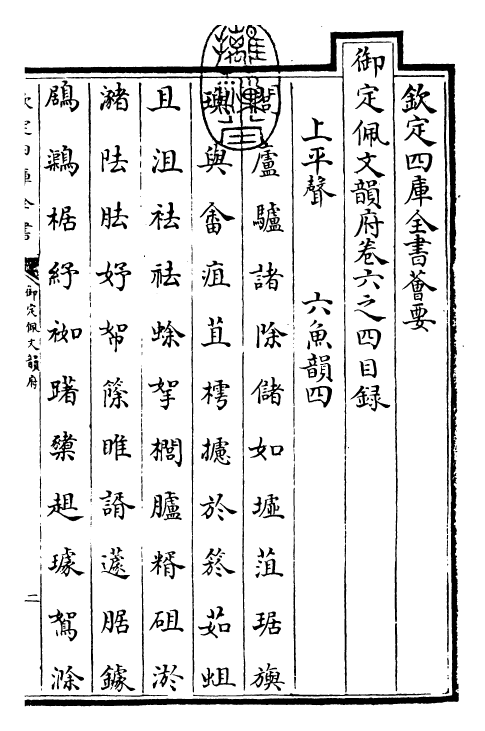 欽定四庫全書薈要
御定佩文韻府卷六之四目録
上平聲 六魚韻四
閭廬驢諸除儲如墟菹琚旟
璵與畬疽苴樗攄於箊茹蛆
且沮祛袪蜍挐櫚臚糈砠淤
瀦阹胠妤帤篨雎諝蘧腒鐻
鶋椐紓袽躇趄璩鴽滁
欽定四庫全書
御定佩文韻府
二